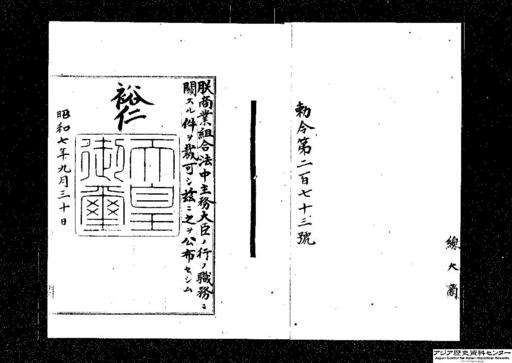 勅令第二百七十三號
朕商業組合法中主務大臣ノ行フ職務ニ
關スル件ヲ裁可シ茲ニ之ヲ公布セシム
裕仁
天皇
御璽
昭和七年九月三十日
アジア歴史資料センター
Japan Center for Asian Historical Records